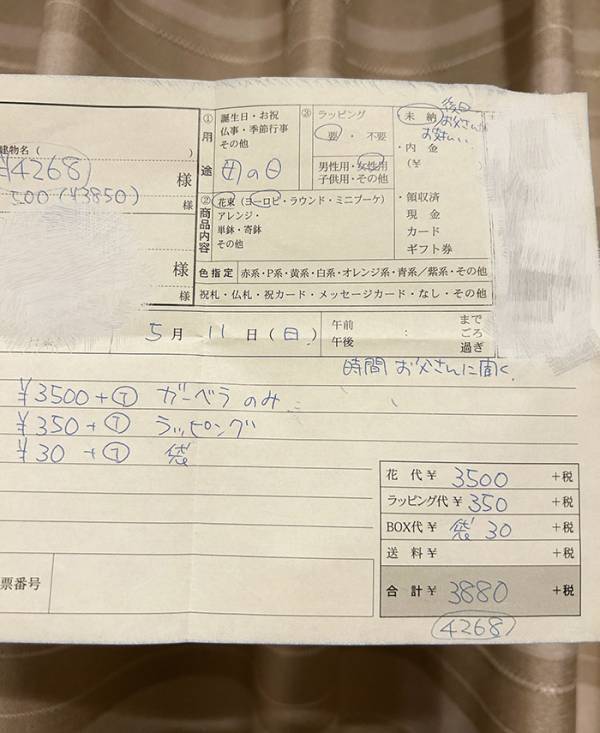 建物名(　　　　)
¥4268　様
500(¥3850)　様
様
様
① 用途
誕生日・お祝
仏事・季節行事
その他
母の日
③ ラッピング
要・不要
男性用・女性用
子供用・その他
② 商品内容
花束(ヨーロピ・ラウンド・ミニブーケ)
アレンジ・
単鉢・寄鉢
その他
未納
後日
お父さん
お支払い
・内金
(¥　　)
・領収済
現金
カード
ギフト券
色指定　赤系・P系・黄系・白系・オレンジ系・青系/紫系・その他
祝札・仏札・祝カード・メッセージカード・なし・その他
5月 11日(日)
午前　：　まで
午後　ごろ
過ぎ
時間 お父さんに聞く
¥3500+T ガーベラ のみ
¥350+T ラッピング
¥30+T 袋
花代¥ 3500 +税
ラッピング代¥ 350 +税
BOX代¥ 袋 30 +税
送料¥ +税
合計¥ 3880 +税
4268
票番号